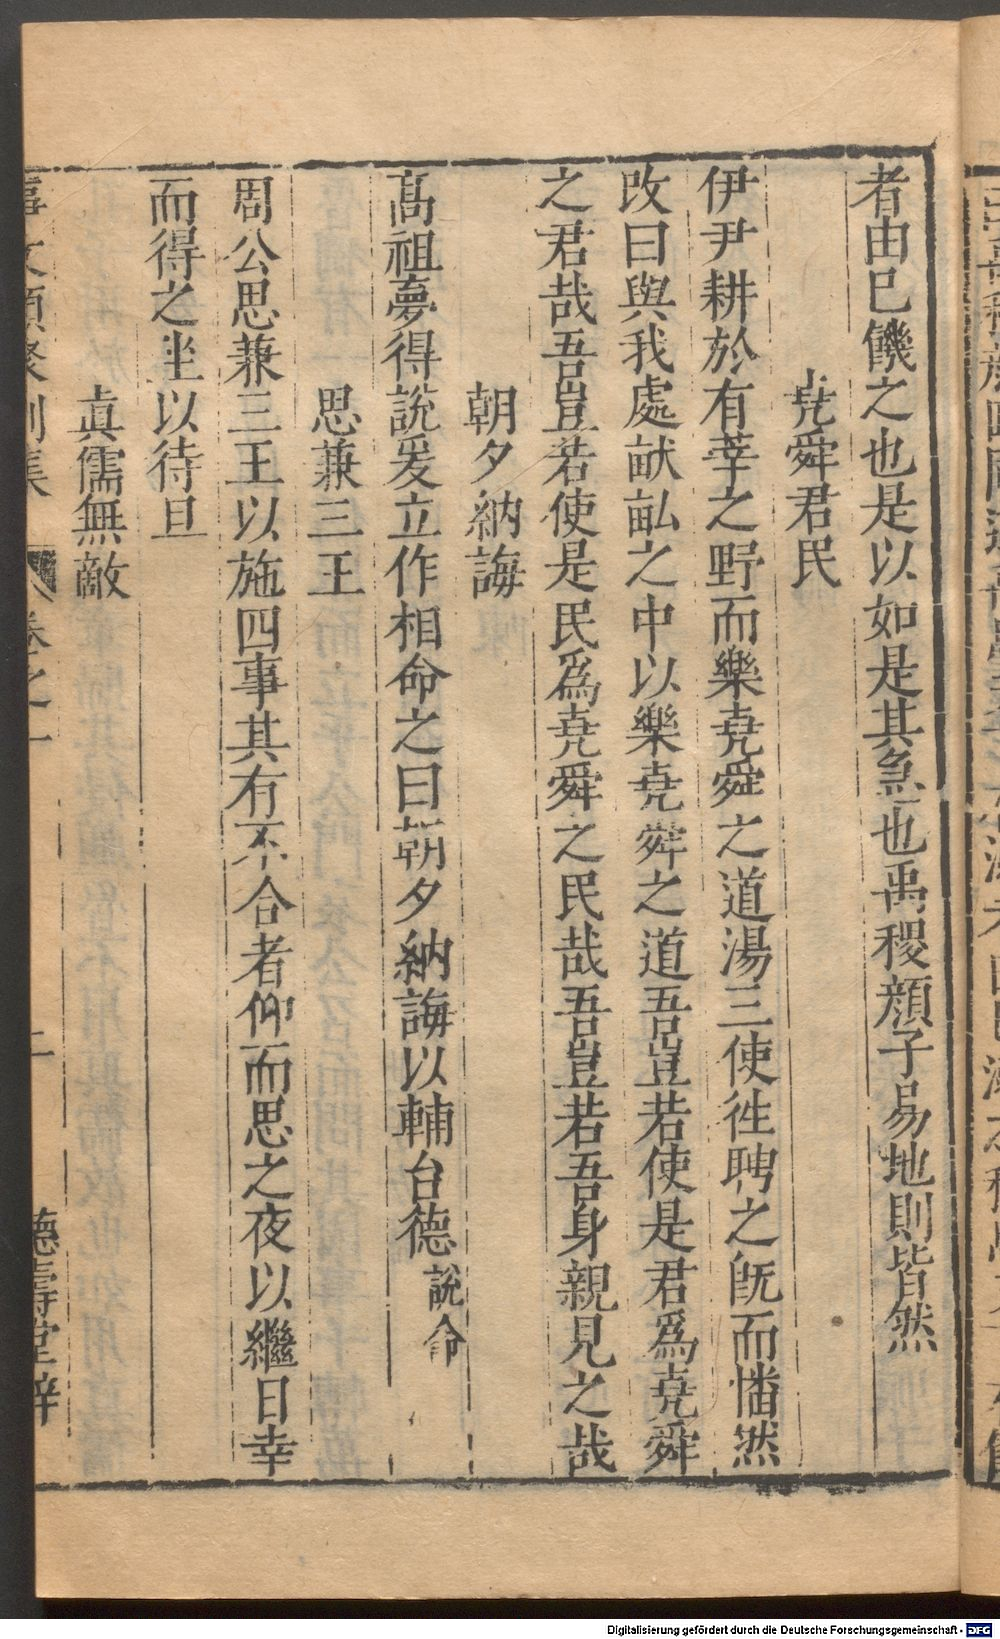 者由已饑之也是以如是其急也禹稷顏子易地則皆然
堯舜君民
伊尹耕於有莘之野而樂堯舜之道湯三使徃聘之旣而幡然
改曰與我處畎畝之中以樂堯舜之道吾豈若使是君爲堯舜
之君哉吾豈若使是民爲堯舜之民哉吾豈若吾身親見之哉
朝夕納誨
高祖夢得說爰立作相命之曰朝夕納誨以輔台德說命
思兼三王
周公思兼三王以施四事其有不合者仰而思之夜以繼日幸
而得之坐以待旦
眞儒無敵
事文類聚別集 卷之一 二 德壽堂梓
Digitalisierung gefördert durch die Deutsche Forschungsgemeinschaft - DFG